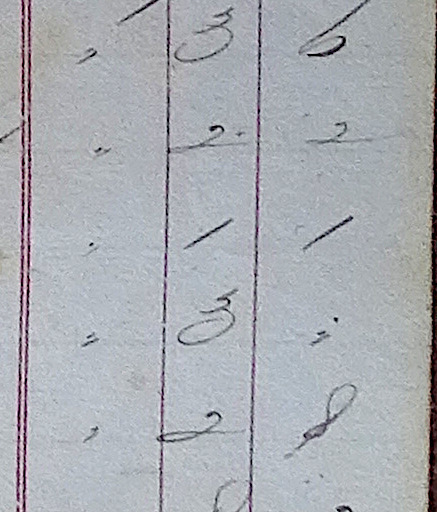 " 3 6
" 2 2
" 1 1
" 3 "
" 2 8